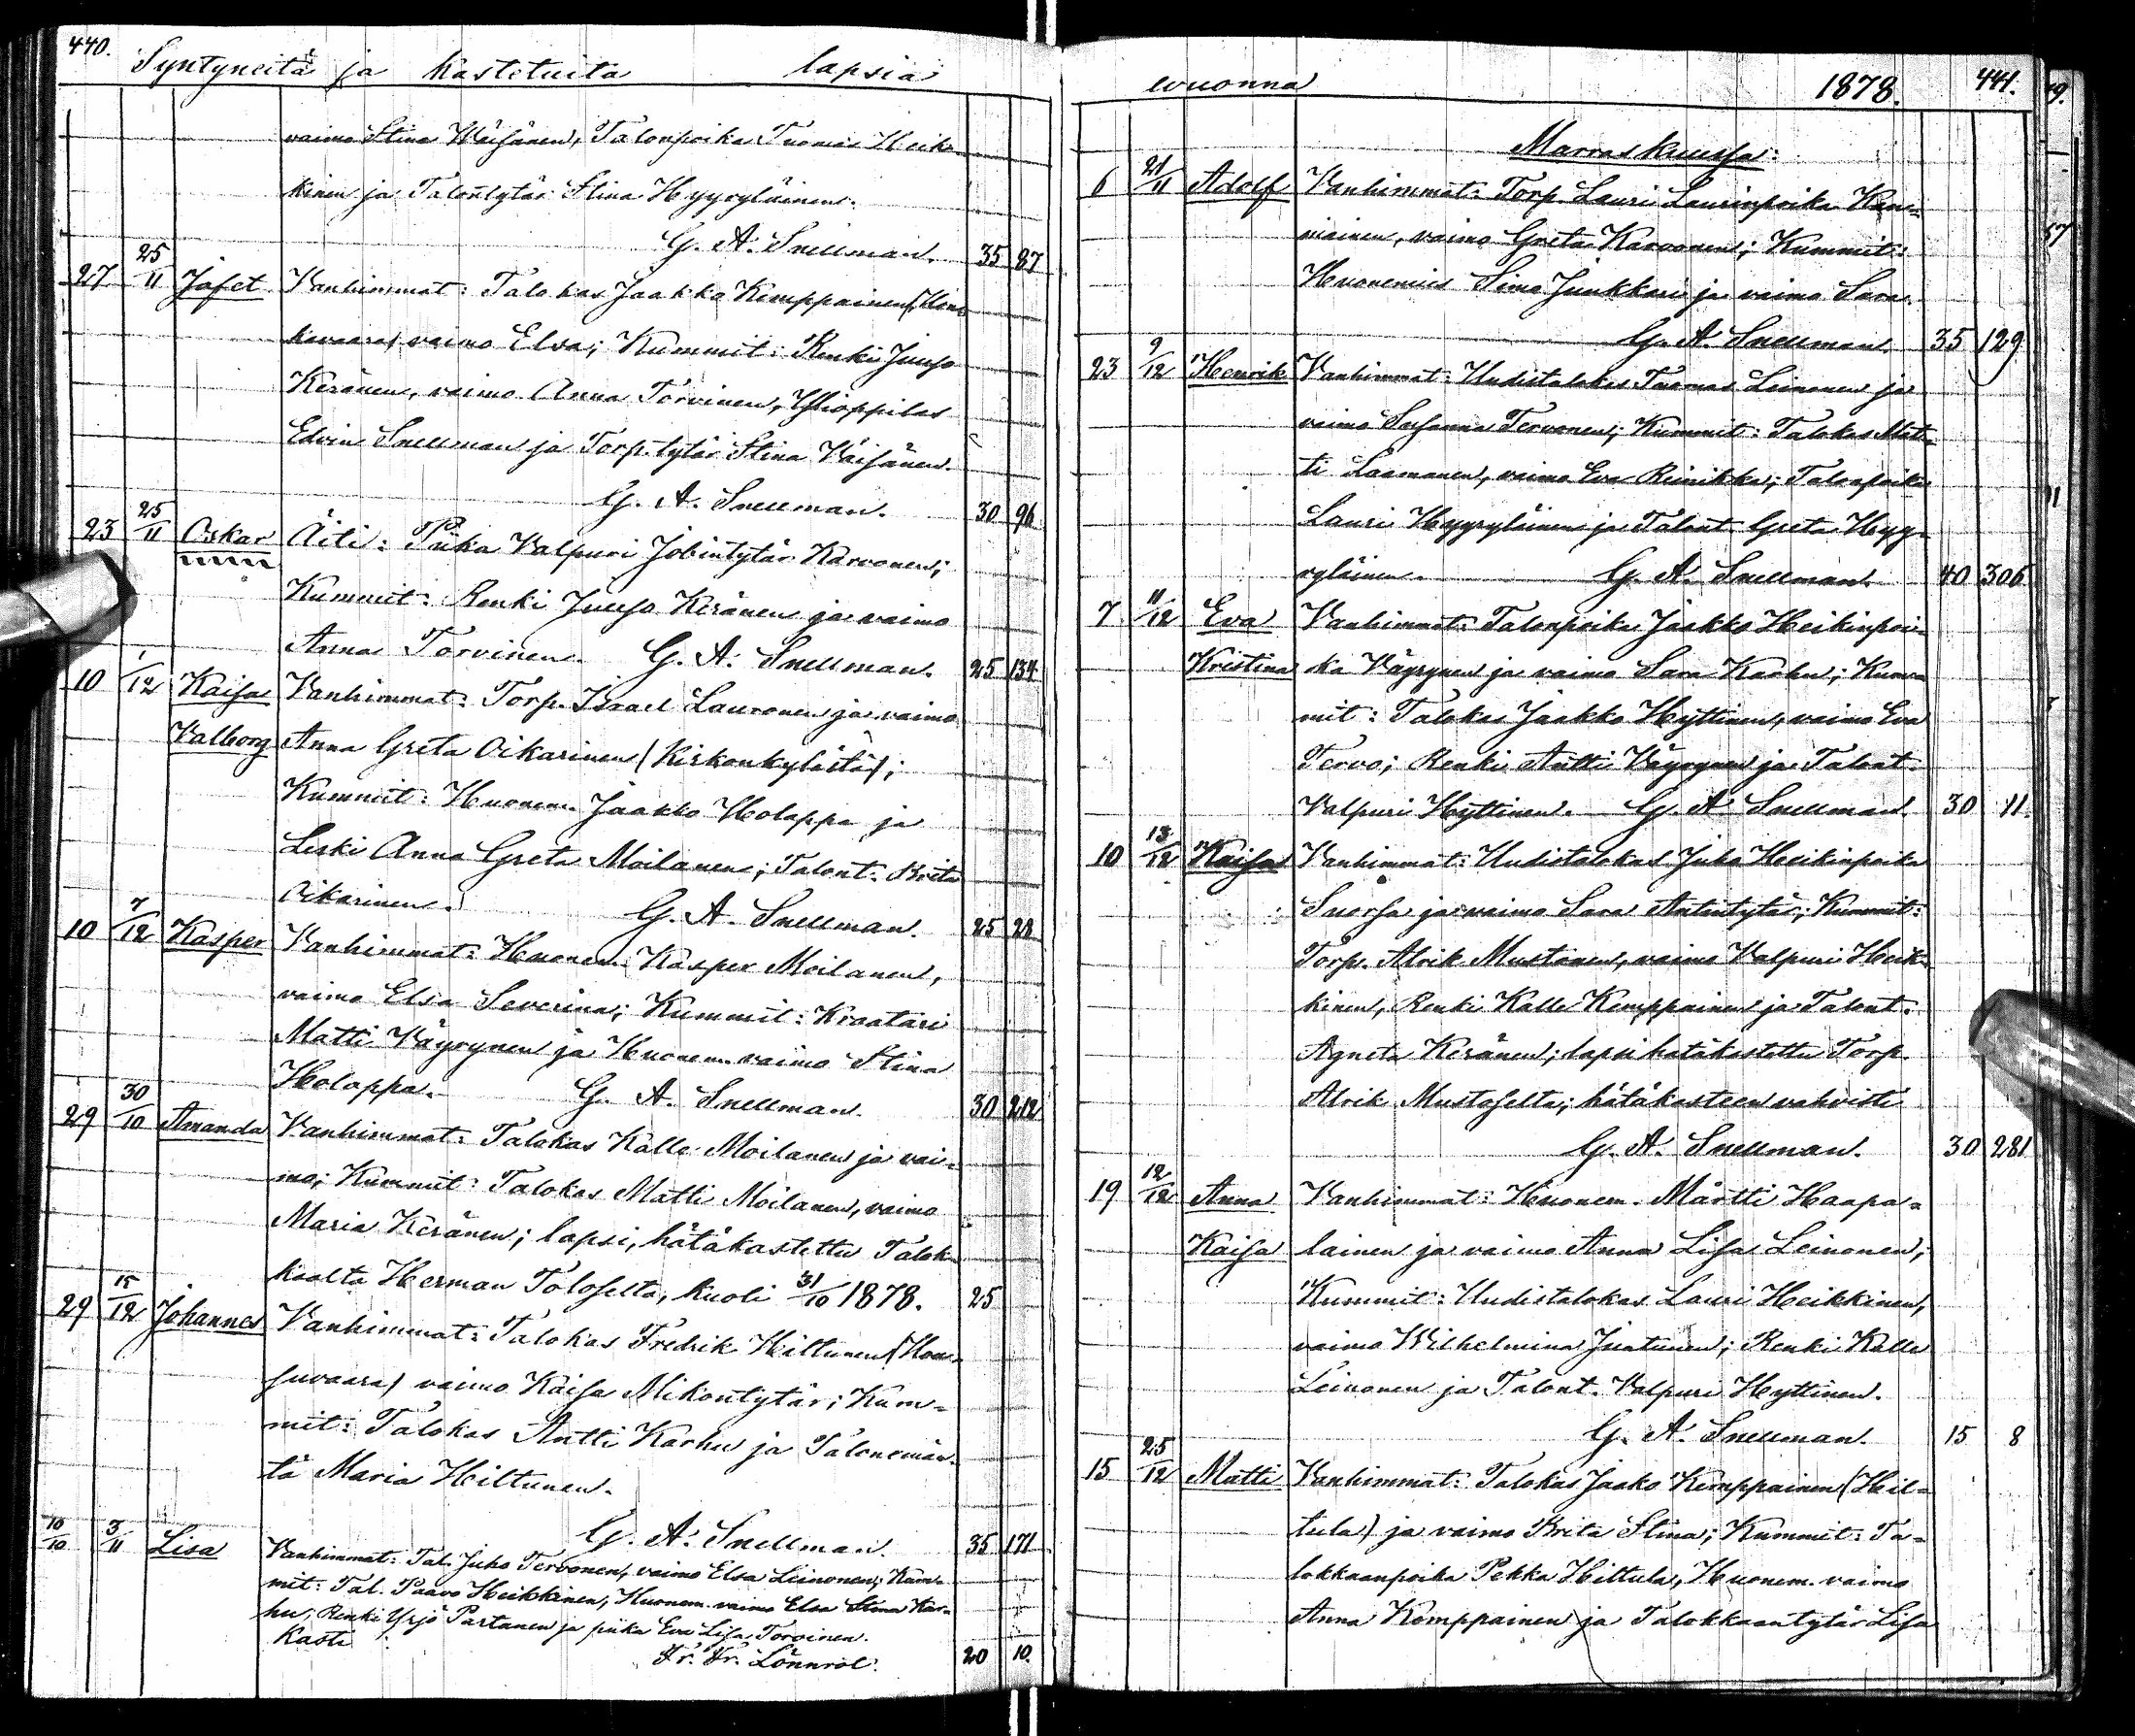 440.
Syntyneitä ja kastetuita lapsia
vaimo Stina Wäisänen, Talonpoika Tuomas Heik-
kinen ja Talontytär Stina Hyyryläinen.
G. A. Snellman. 35 87
27 25/11 Jafet Vanhimmat: Talokas Jaakko Kemppainen
kavaara) vaimo Elsa; Kummit: Renki Juuso
Keränen, vaimo Anna Torvinen, Ylioppilas
Edvin Snellman ja Torp. tytär Stina Väisänen.
G. A. Snellman. 30 96
23 25/11 Oskar Äiti: Piika Valpuri Jobintytär Karvonen;
Kummit: Renki Juuso Keränen ja vaimo
Anna Torvinen. G. A. Snellman. 25 134
10 1/12 Kaisa Vanhimmat: Torp. Israel Lauronen ja vaimo
Valborg Anna Greta Oikarinen (Kirkonkylästä);
Kummit: Huonem. Jaakko Holappa ja
Leski Anna Greta Moilanen; Talont. Brita
Oikarinen. G. A. Snellman. 25 28
10 7/12 Kasper Vanhimmat: Huonem. Kasper Moilanen,
vaimo Elsa Severina; Kummit: Kraatari
Matti Väyrynen ja Huonem. vaimo Stina
Holappa. G. A. Snellman. 30 212
29 30/10 Amanda Vanhimmat: Talokas Kalle Moilanen ja vai-
mo; Kummit: Talokas Matti Moilanen, vaimo
Maria Keränen; lapsi, hätäkastettu Talok-
kaalta Herman Toloselta, kuoli 31/10 1878. 25
29 15/12 Johannes Vanhimmat: Talokas Fredrik Hiltunen
suvaara) vaimo Kaisa Mikontytär; Kum-
mit: Talokas Antti Karhu ja Talonemän-
tä Maria Hiltunen.
G. A. Snellman. 35 171
10/10 3/11 Lisa Vanhimmat: Tal. Juho Tervonen, vaimo Elsa Leinonen; Kum-
mit: Tal. Paavo Heikkinen, Huonem. vaimo Elsa Stina Kar-
hu; Renki Yrjö Partanen ja piika Eva Lisa Torvinen.
Kasti Fr. Fr. Lönnrot. 20 10.
wuonna 1878. 441.
Marraskuussa:
6 21/11 Adolf Vanhimmat: Torp. Lauri Laurinpoika Kan-
niainen, vaimo Greta Karvonen; Kummit:
Huonemies Simo Junkkari ja vaimo Sara.
G. A. Snellman. 35 129
23 9/12 Henrik Vanhimmat: Uudistalokas Tuomas Leinonen ja
vaimo Susanna Tervonen; Kummit: Talokas Mat-
ti Laamanen, vaimo Eva Reinikka; Talonpoika
Lauri Hyyryläinen ja Talont. Greta Hyy-
ryläinen. G. A. Snellman. 40 306
7 11/12 Eva Vanhimmat: Talonpoika Jaakko Heikinpoi-
Kristina ka Väyrynen ja vaimo Sara Karhu; Kum-
mit: Talokas Jaakko Hyttinen, vaimo Eva
Tervo; Renki Antti Väyrynen ja Talont.
Valpuri Hyttinen. G. A. Snellman. 30 11.
10 13/12 Kaisa Vanhimmat: Uudistalokas Juho Heikinpoika
Suorsa ja vaimo Sara Antintytär; Kummit:
Torp. Alrik Mustonen, vaimo Valpuri Heik-
kinen, Renki Kalle Kemppainen ja Talont.
Agneta Keränen; lapsi hätäkastettu Torp.
Alrik Mustaselta; hätäkasteen vahvisti
G. A. Snellman. 30 281
19 12/12 Anna Vanhimmat: Huonem. Martti Haapa-
Kaisa lainen ja vaimo Anna Lisa Leinonen;
Kummit: Uudistalokas Lauri Heikkinen,
vaimo Wilhelmina Juntunen; Renki Kalle
Leinonen ja Talont. Valpuri Hyttinen.
G. A. Snellman. 15 8
15 25/12 Matti Vanhimmat: Talokas Jaako Kemppainen (Hil-
tula) ja vaimo Brita Stina; Kummit: Ta-
lokkaanpoika Pekka Hiltula, Huonem. vaimo
Anna Kemppainen ja Talokkaantytär Lisa